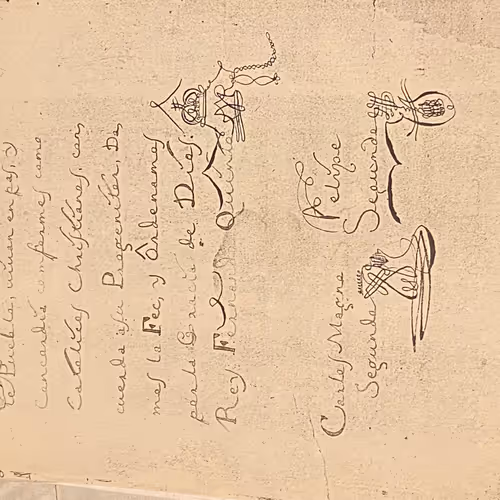 te Pueblo, vivan en paz, y
concordia conformes como
catolicos Christianos, con
cuerda a su Progenitor, Da
mos la Fee, y Ordenamos
por la Gracia de Dios.
Rey Fernando Quinto
Felipe
Segundo
Carlos Magno
Segundo